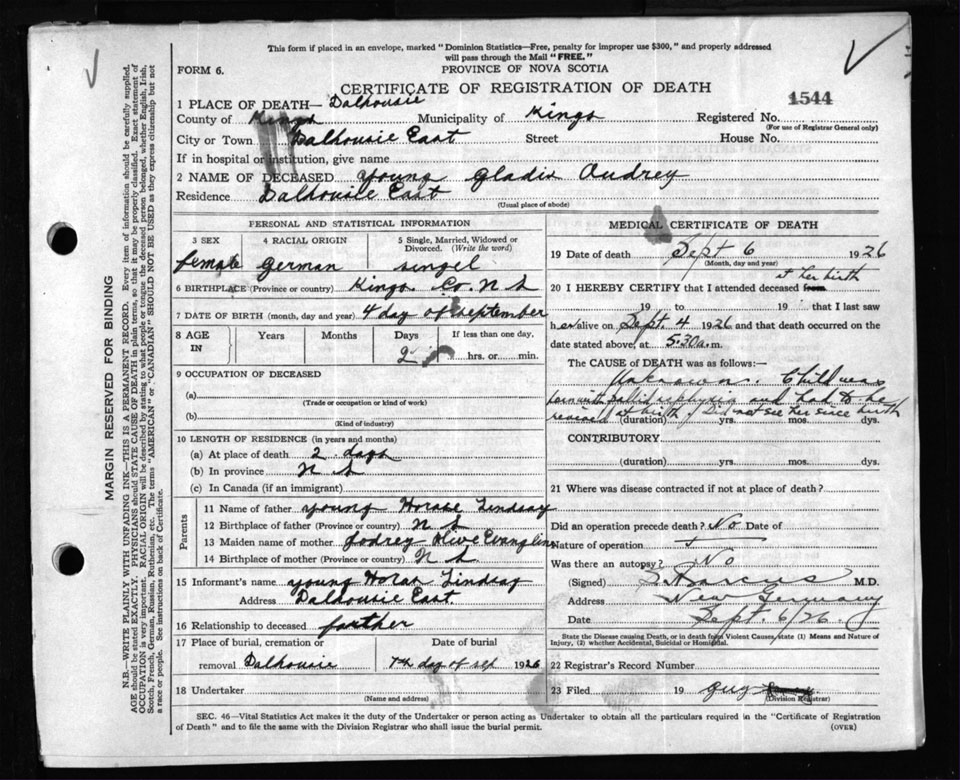 This form if placed in an envelope, marked "Dominion Statistics—Free, penalty for improper use $300," and properly addressed
will pass through the Mail "FREE."
FORM 6.
PROVINCE OF NOVA SCOTIA
CERTIFICATE OF REGISTRATION OF DEATH
1544
1 PLACE OF DEATH— Dalhousie
County of Kings Municipality of Kings Registered No.
(For use of Registrar General only)
City or Town Dalhousie East Street House No.
If in hospital or institution, give name
2 NAME OF DECEASED Young Gladis Audrey
Residence Dalhousie East
(Usual place of abode)
PERSONAL AND STATISTICAL INFORMATION
3 SEX 4 RACIAL ORIGIN 5 Single, Married, Widowed or
Divorced. (Write the word)
female German singel
6 BIRTHPLACE (Province or country) Kings Co. N S
7 DATE OF BIRTH (month, day and year) 4 day of September
8 AGE IN Years Months Days If less than one day,
2 hrs. or min.
9 OCCUPATION OF DECEASED
(a)
(Trade or occupation or kind of work)
(b)
(Kind of industry)
10 LENGTH OF RESIDENCE (in years and months)
(a) At place of death 2 days
(b) In province N S
(c) In Canada (if an immigrant)
Parents
11 Name of father Young Horace Lindsay
12 Birthplace of father (Province or country) N S
13 Maiden name of mother Godrey Olive Evangline
14 Birthplace of mother (Province or country) N S
15 Informant's name Young Horas Lindsay
Address Dalhousie East.
16 Relationship to deceased farther
17 Place of burial, cremation or Date of burial
removal Dalhousie 7th day of sep 1926
18 Undertaker
(Name and address)
MEDICAL CERTIFICATE OF DEATH
19 Date of death Sept 6 1926
(Month, day and year)
at her birth
20 I HEREBY CERTIFY that I attended deceased from
19 to 19 that I last saw
her alive on Sept. 4 1926 and that death occurred on
date stated above, at 5:30 a.m.
The CAUSE OF DEATH was as follows:—
Unknown. Child was
born with and had to be
revived at birth. Did not see her since birth
(duration) yrs. mos. dys.
CONTRIBUTORY
(duration) yrs. mos. dys.
21 Where was disease contracted if not at place of death?
Did an operation precede death? No Date of
Nature of operation
Was there an autopsy? No
(Signed) M.D.
Address New Germany
Date Sept. 6/26.
State the Disease causing Death, or in death from Violent Causes, state (1) Means and Nature of
Injury, (2) whether Accidental, Suicidal or Homicidal.
22 Registrar's Record Number
23 Filed 19 Guy
(Division Registrar)
SEC. 46—Vital Statistics Act makes it the duty of the Undertaker or person acting as Undertaker to obtain all the particulars required in the "Certificate of Registration
of Death" and to file the same with the Division Registrar who shall issue the burial permit.
(OVER)
MARGIN RESERVED FOR BINDING
N.B.—WRITE PLAINLY WITH UNFADING INK—THIS IS A PERMANENT RECORD. Every item of information should be carefully supplied.
AGE should be stated EXACTLY. PHYSICIANS should STATE CAUSE OF DEATH in plain terms, so that it may be properly classified. Exact statement of
OCCUPATION is very important. RACIAL ORIGIN will be described by stating to what people or tongue the deceased person belonged, whether English, Irish,
Scotch, French, German, Russian, Ruthenian, etc. The terms "AMERICAN" or "CANADIAN" SHOULD NOT BE USED as they express citizenship but not
a race or people. See instructions on back of Certificate.